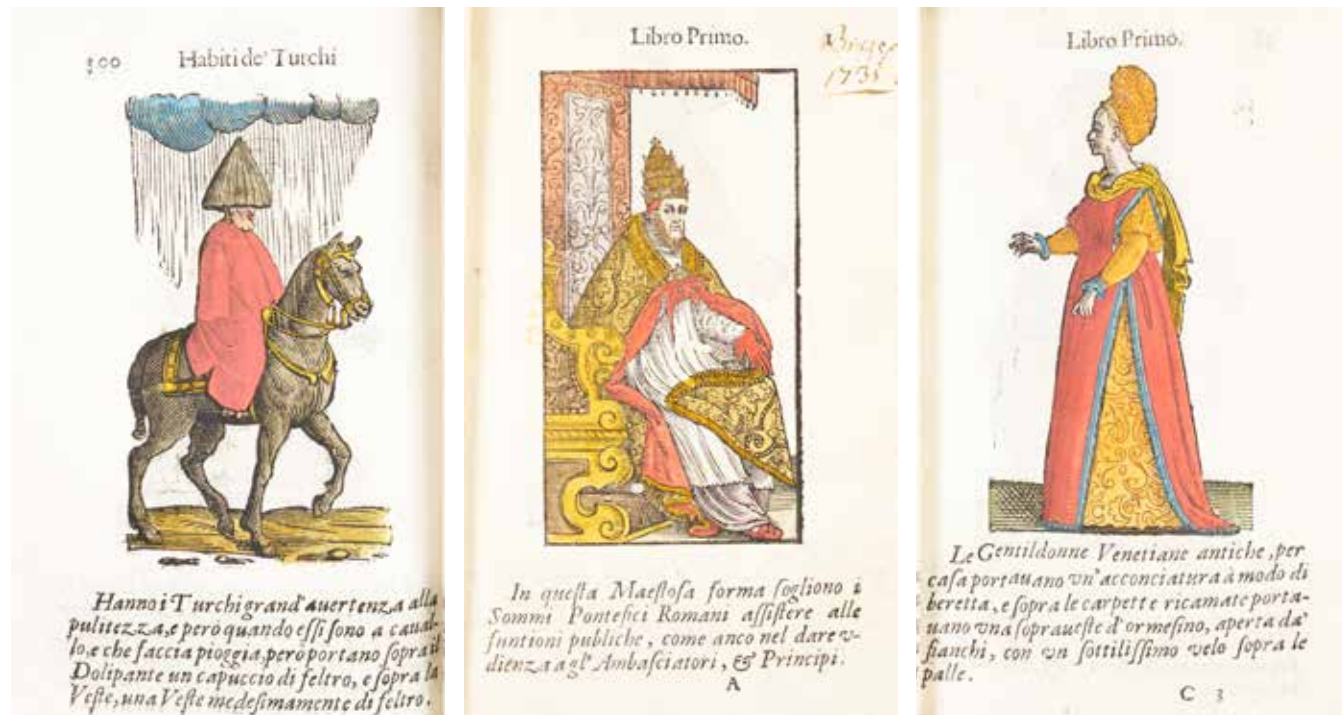 300 Habiti de' Turchi
Hanno i Turchi grand' auertenza alla
pulitezza, e però quando essi sono a caual-
lo, e che faccia pioggia, però portano sopra il
Dolipante un capuccio di feltro, e sopra la
Veste, una Veste medesimamente di feltro.
Libro Primo. 1
1735
In questa Maestosa forma sogliono i
Sommi Pontefici Romani assistere alle
funtioni publiche, come anco nel dare v-
dienza agl' Ambasciatori, & Principi.
A
Libro Primo.
Le Gentildonne Venetiane antiche, per
casa portauano vn' acconciatura à modo di
beretta, e sopra le carpette ricamate porta-
uano vna sopraueste d'ormesino, aperta da'
fianchi, con vn sottilissimo velo sopra le
palle.
C 3